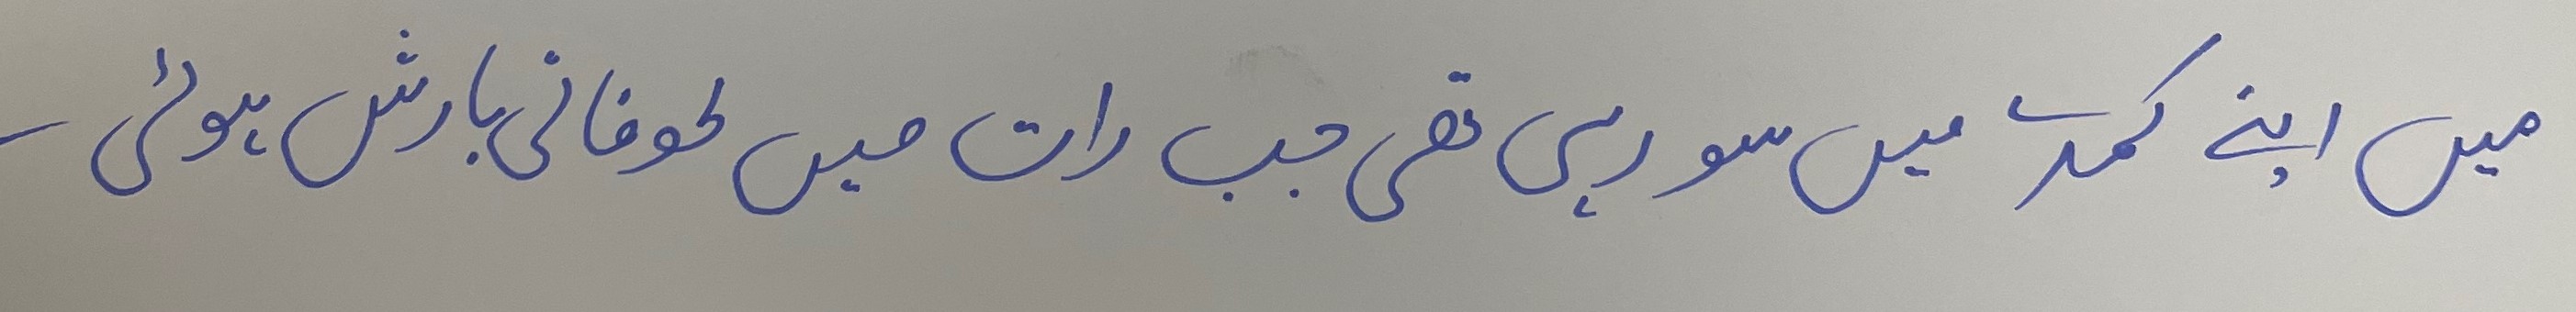 میں اپنے کمرے میں سو رہی تھی جب رات میں طوفانی بارش ہوئی ۔